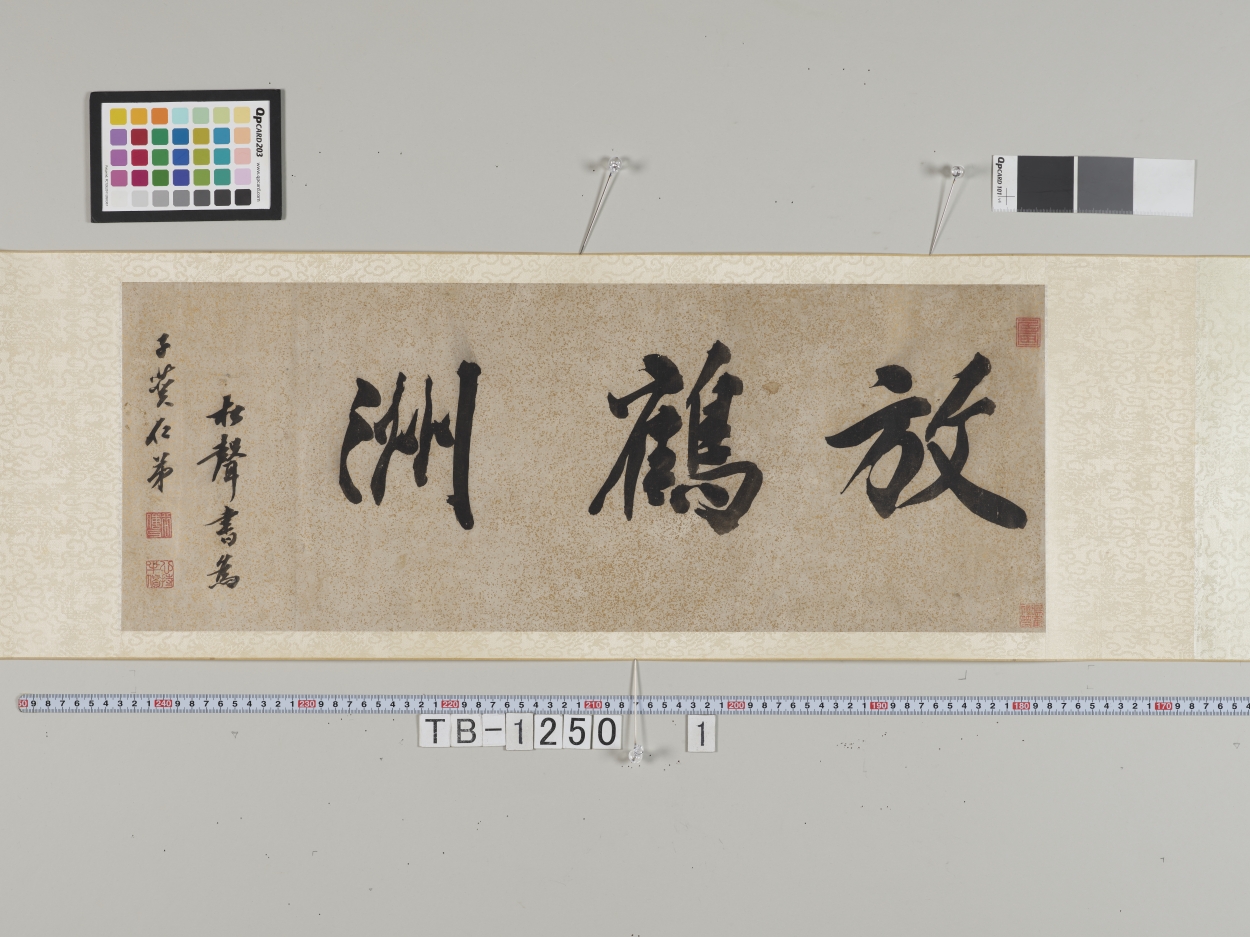 放鶴洲
聲書為
子葵仁弟
QPCARD 203
www.qpcard.com
QPCARD 101
240 230 220 210 200 190 180 170
TB-1250 1